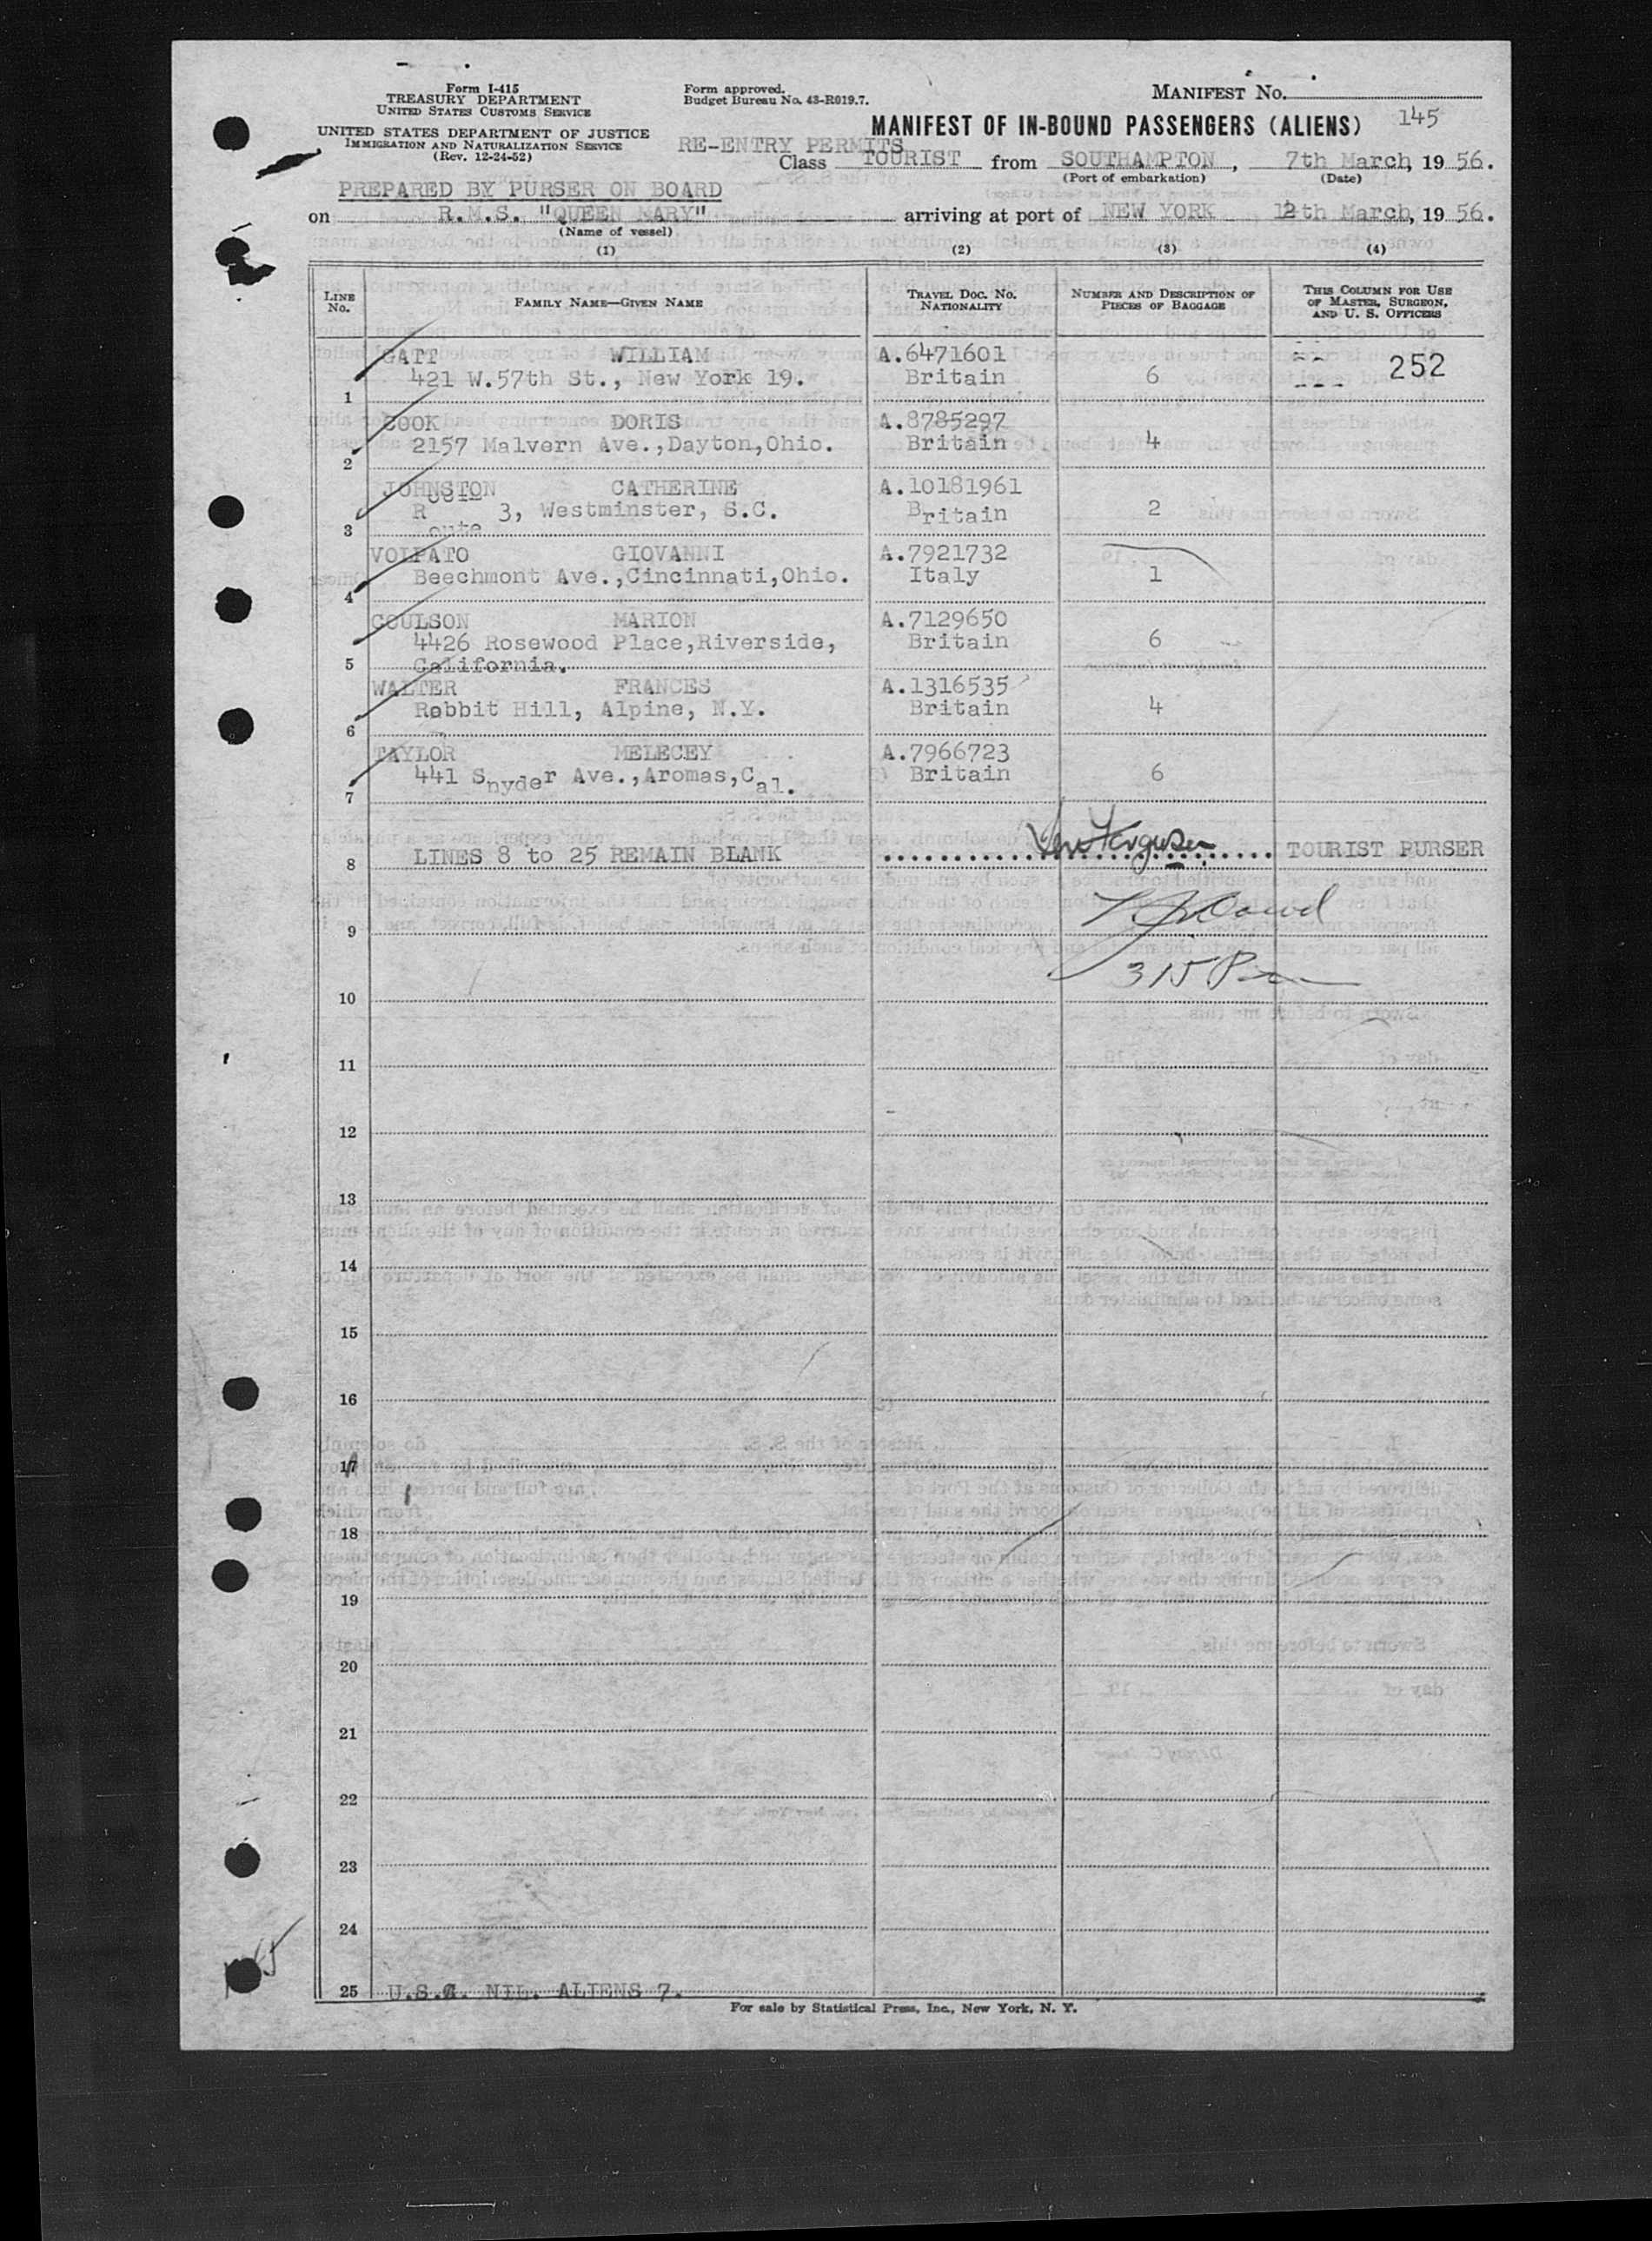 Form I-415
TREASURY DEPARTMENT
UNITED STATES CUSTOMS SERVICE
UNITED STATES DEPARTMENT OF JUSTICE
IMMIGRATION AND NATURALIZATION SERVICE
(Rev. 12-24-52)
Form approved.
Budget Bureau No. 43-R019.7.
MANIFEST NO.
MANIFEST OF IN-BOUND PASSENGERS (ALIENS) 145
RE-ENTRY PERMITS
Class TOURIST from SOUTHAMPTON, 7th March, 1956.
(Port of embarkation) (Date)
PREPARED BY PURSER ON BOARD
on R.M.S. "QUEEN MARY" arriving at port of NEW YORK 12th March, 1956.
(Name of vessel)
(1) (2) (3) (4)
LINE No. FAMILY NAME—GIVEN NAME TRAVEL DOC. NO. NATIONALITY NUMBER AND DESCRIPTION OF PIECES OF BAGGAGE THIS COLUMN FOR USE OF MASTER, SURGEON, AND U. S. OFFICERS
GATT WILLIAM A.6471601 252
421 W.57th St., New York 19. Britain 6
1
COOK DORIS A.8785297
2157 Malvern Ave.,Dayton,Ohio. Britain 4
2
JOHNSTON CATHERINE A.10181961
Route 3, Westminster, S.C. Britain 2
3
VOLPATO GIOVANNI A.7921732
Beechmont Ave.,Cincinnati,Ohio. Italy 1
4
COULSON MARION A.7129650
4426 Rosewood Place,Riverside, Britain 6
5 California.
WALTER FRANCES A.1316535
Rabbit Hill, Alpine, N.Y. Britain 4
6
TAYLOR MELECEY A.7966723
441 Snyder Ave.,Aromas,Cal. Britain 6
7
8 LINES 8 to 25 REMAIN BLANK Ferguson TOURIST PURSER
9
315 Pm
10
11
12
13
14
15
16
17
18
19
20
21
22
23
24
25 U.S.C. NIL. ALIENS 7.
For sale by Statistical Press, Inc., New York, N. Y.